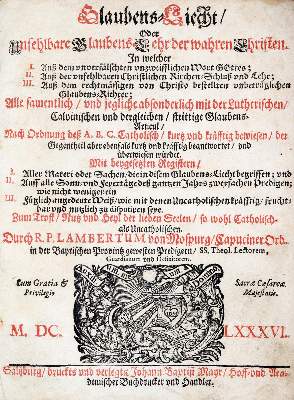 Glaubens-Liecht/
Oder
Unfehlbare Glaubens-Lehr der wahren Christen.
In welcher
I. Auß dem unverfälschten unzweifflichen Wort GOttes;
II. Auß der unfehlbaren Christlichen Kirchen-Schluß und Lehr;
III. Auß dem rechtmässigen von Christo bestellten unbetrüglichen
Glaubens-Richter;
Alle samentlich / und jegliche absonderlich mit der Lutherischen /
Calvinischen und dergleichen / strittige Glaubens-
Articul /
Nach Ordnung deß A. B. C. Catholisch / kurtz und kräfftig bewiesen / der
Gegentheil aber ebenfals kurtz und kräfftig beantwortet / und
überwiesen würdet.
Mit beygesetzten Registern /
I. Aller Materi oder Sachen / die in disem Glaubens-Liecht begriffen; und
II. Auff alle Sonn- und Feyertäge deß gantzen Jahrs zweyfachen Predigen;
wie nicht weniger ein
III. Füglich angedeute Weiß / wie mit denen Uncatholischen kräfftig / frucht-
bar und nutzlich zu disputiren seye.
Zum Trost / Nutz und Heyl der lieben Seelen / so wohl Catholisch-
als Uncatholischen.
Durch R. P. LAMBERTUM von Mospurg / Capuciner Ord.
in der Bayrischen Provintz gewesten Predigern / SS. Theol. Lectorem,
Guardianum und Definitorem.
Cum Gratia &
Privilegio
Sacræ Cæsareæ
Majestatis.
M. DC.
LXXXVI.
Saltzburg / druckts und verlegts Johann Baptist Mayr / Hoff- und Aca-
demischer Buchdrucker und Handler.